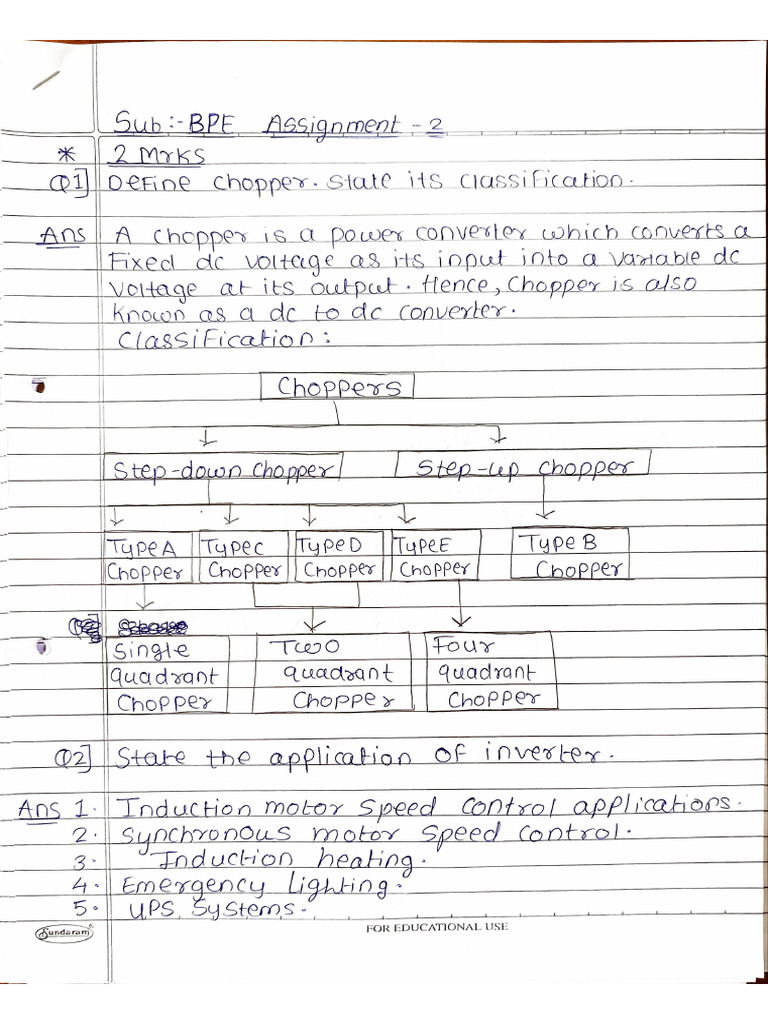 Sub:- BPE Assignment - 2
* 2 Mrks
Q1] Define chopper. State its classification.
Ans A chopper is a power converter which converts a
fixed dc voltage as its input into a variable dc
voltage at its output. Hence, Chopper is also
known as a dc to dc converter.
Classification:
Choppers
Step-down chopper Step-up chopper
Type A Type C Type D Type E Type B
Chopper Chopper Chopper Chopper Chopper
Single Two Four
quadrant quadrant quadrant
Chopper Chopper Chopper
Q2] State the application of inverter.
Ans 1. Induction motor speed control applications.
2. Synchronous motor speed control.
3. Induction heating.
4. Emergency Lighting.
5. UPS Systems.
Sundaram FOR EDUCATIONAL USE